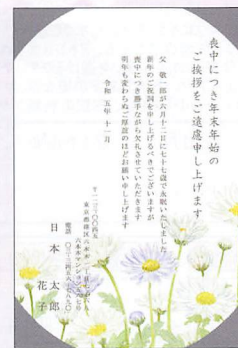 喪中につき年末年始の
ご挨拶をご遠慮申し上げます
父 敬一郎が六月十二日に七十七歳で永眠いたしました
新年のご祝詞を申し上げるべきでございますが
喪中につき勝手ながら欠礼させていただきます
明年も変わらぬご厚誼のほどお願い申し上げます
令和 五年 十一月
東京都港区六本木
六本木マンション
電話
日本 太郎
花子